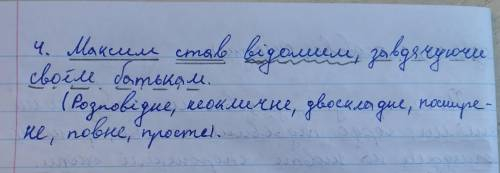 4. Максим став відомим, завдячуючи
своїм батькам.
(Розповідне, неокличне, двоскладне, пошире-
не, повне, просте).